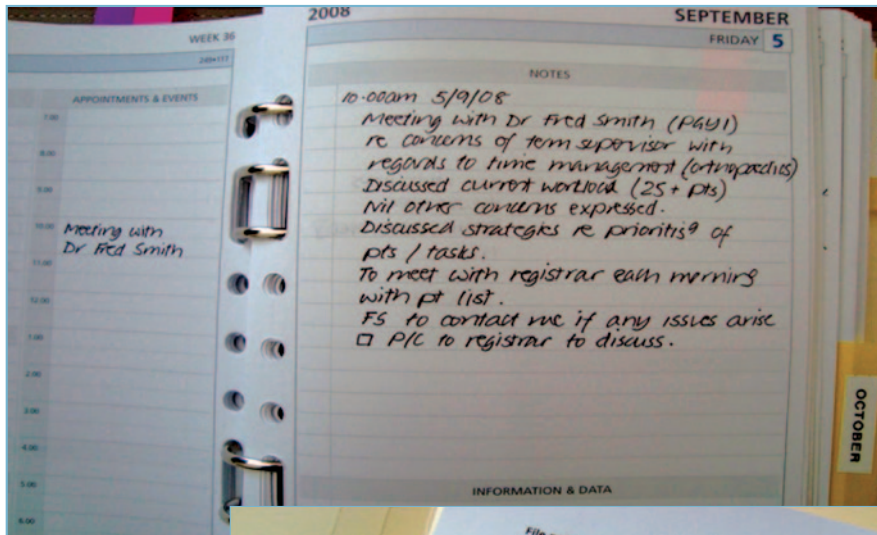 WEEK 36
249•117
APPOINTMENTS & EVENTS
7.00
8.00
9.00
10.00
Meeting with
Dr Fred Smith
11.00
12.00
1.00
2.00
3.00
4.00
5.00
6.00
2008
SEPTEMBER
FRIDAY 5
NOTES
10.00am 5/9/08
Meeting with Dr Fred Smith (PGY1)
re concerns of term supervisor with
regards to time management (orthopaedics)
Discussed current workload (25+ pts)
Nil other concerns expressed.
Discussed strategies re prioritisg of
pts / tasks.
To meet with registrar each morning
with pt list.
FS to contact me if any issues arise
☐ P/C to registrar to discuss.
INFORMATION & DATA
OCTOBER
File